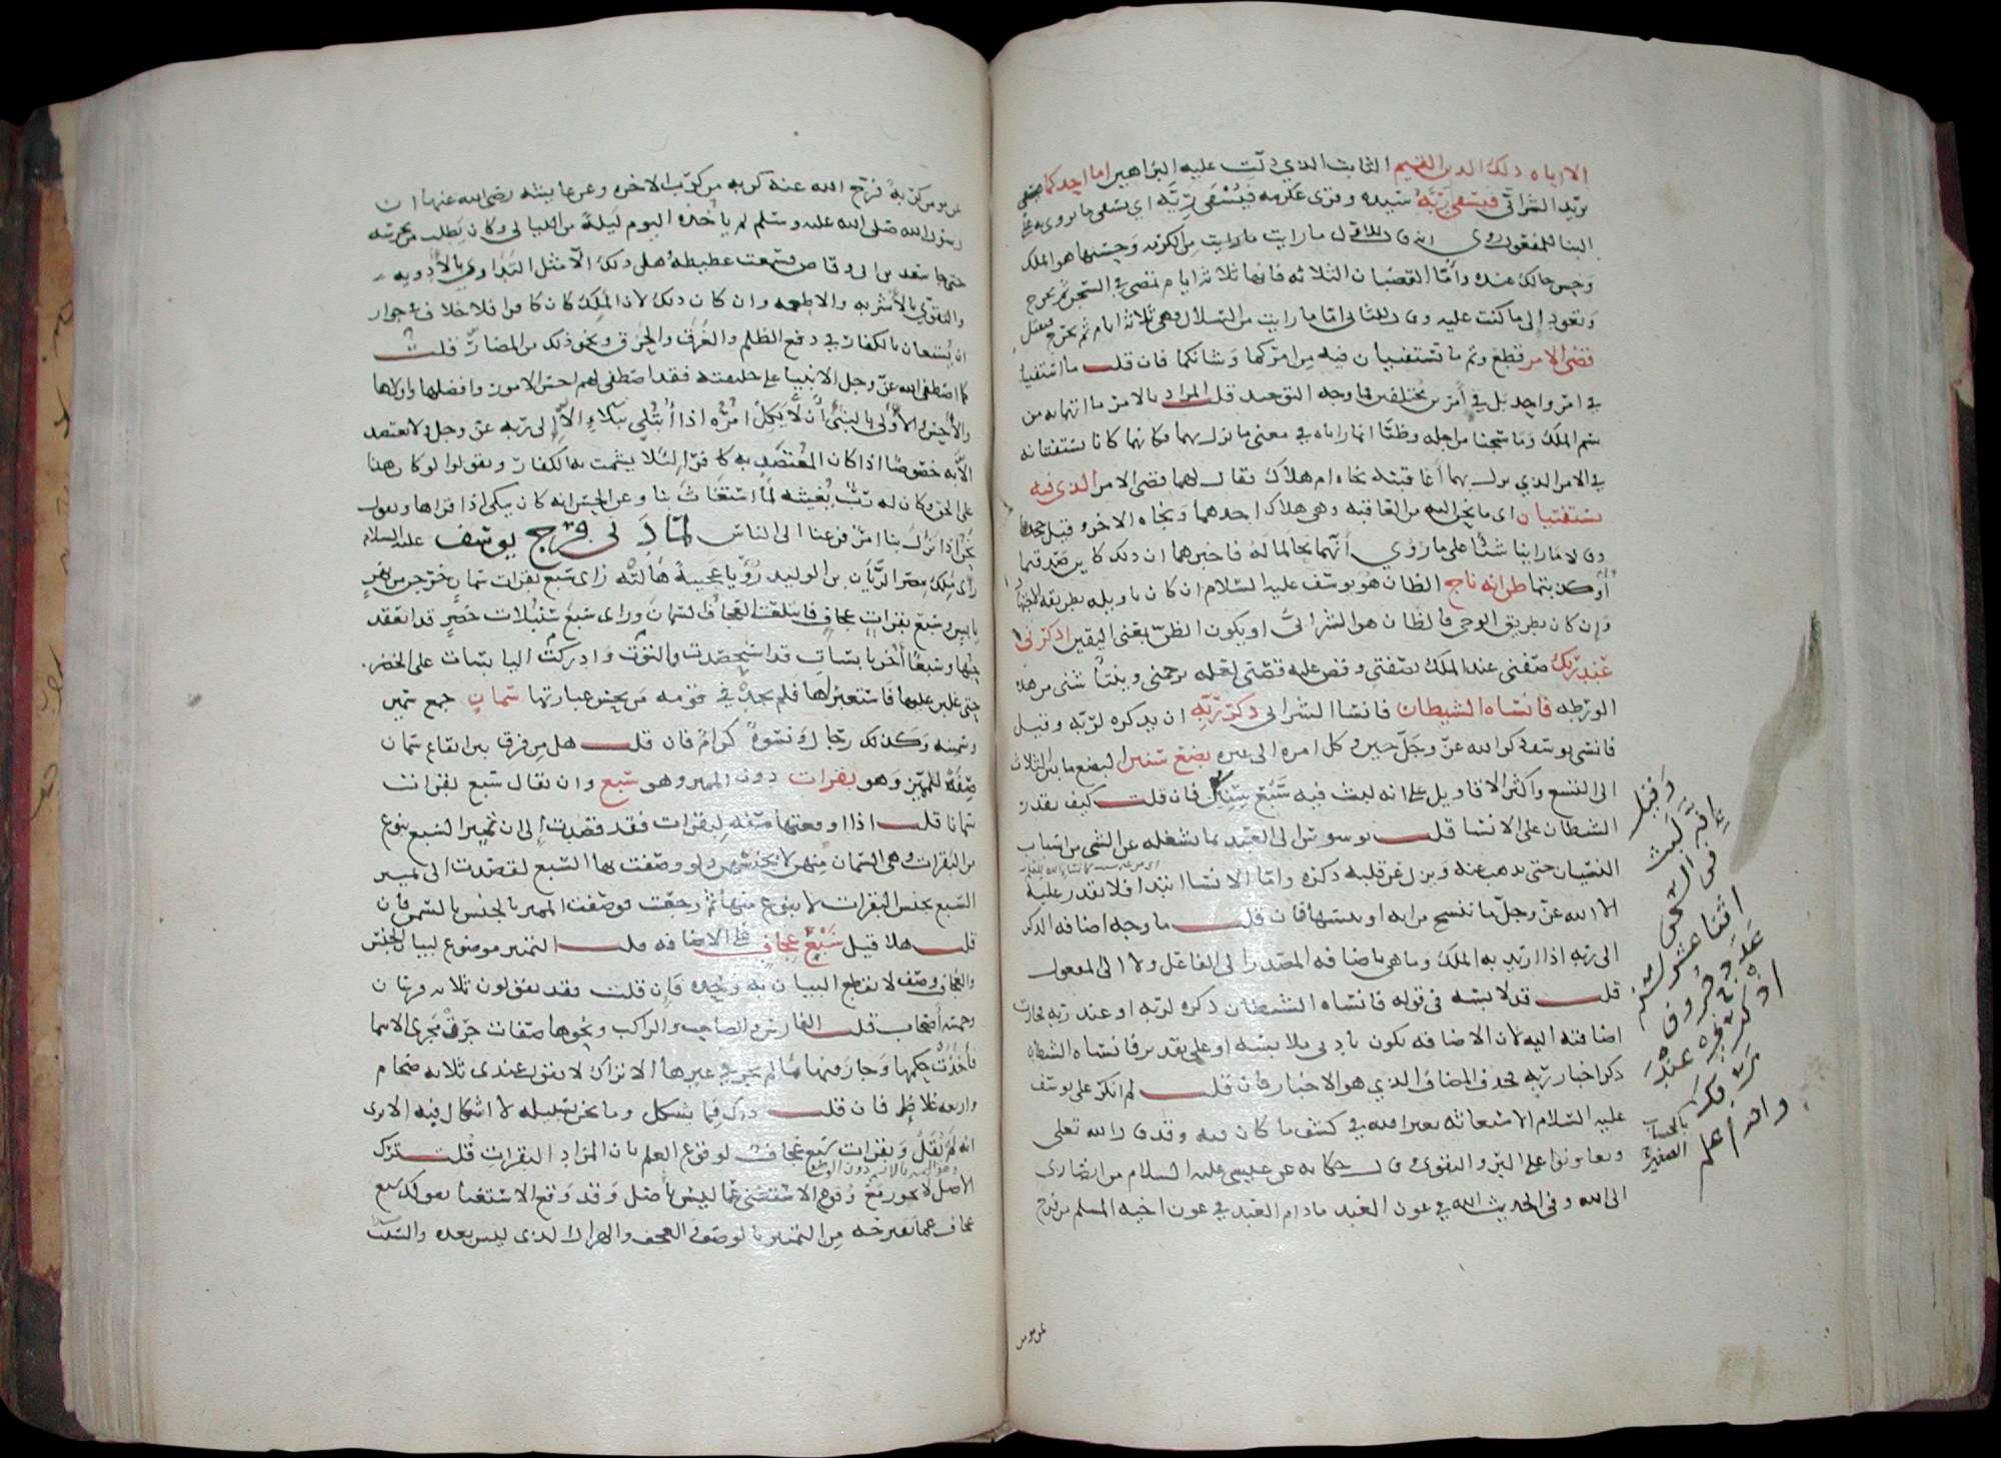 الا اياه ذلك الدين القيم الثابت الذي دلت عليه البراهين اما احدكما
يريد الشرابي فيسقي ربه سيده وقرى عكرمه فيسقى ربه اي يسقى ما يروى به على
البنا للمفعول روى انه قال للاول ما رايت ما رايت من الكرمه وحسنها هو الملك
وحسن حالك عنده واما القضبان الثلاثه فانها ثلاثة ايام تمضي في السجن ثم تخرج
وتعود الى ما كنت عليه وقال للثاني اما ما رايت من السلال فهي ثلاثة ايام ثم تخرج فتقتل
قضى الامر قطع وتم ما تستفتيان فيه من امركما وشانكما فان قلت ما استفتيا
في امر واحد بل في امرين مختلفين فما وجه التوحيد قلت المراد بالامر ما اتهما به من
سم الملك وما سجنا من اجله وظنا ان ما راياه في معنى ما نزل بهما فكانهما كانا يستفتيانه
في الامر الذي نزل بهما اعاقبته نجاه ام هلاك فقال لهما قضى الامر الذي فيه
تستفتيان اى ما يجر اليه من العاقبه وهي هلاك احدهما ونجاه الاخر وقيل جحدا
وقالا ما راينا شيئا على ما روي انهما تحالما له فاخبرهما ان ذلك كاين صدقتما
او كذبتما ظن انه ناج الظان هو يوسف عليه السلام ان كان تاويله بطريق الاجتهاد
وان كان بطريق الوحي فالظان هو الشرابي او يكون الظن بمعنى اليقين اذكرني
عند ربك صفني عند الملك بصفتي وقص عليه قصتي لعله يرحمني وينتاشني من هذه
الورطه فانساه الشيطان فانسا الشرابي ذكر ربه ان يذكره لربه وقيل
فانسى يوسف ذكر الله عز وجل حين وكل امره الى غيره بضع سنين البضع ما بين الثلاث
الى التسع واكثر الاقاويل على انه لبث فيه سبع سنين فان قلت كيف يقدر
الشيطان على الانسا قلت يوسوس الى العبد بما يشغله عن الشي من اسباب
النسيان حتى يذهب عنه ويزل عن قلبه ذكره واما الانسا ابتدا فلا يقدر عليه
الا الله عز وجل ما ننسخ من ايه او ننسها فان قلت ما وجه اضافه الذكر
الى ربه اذا اريد به الملك وما هي باضافه المصدر الى الفاعل ولا الى المفعول
قلت قد لابسه في قوله فانساه الشيطان ذكره لربه او عند ربه فجازت
اضافته اليه لان الاضافه تكون بادنى ملابسه او على تقدير فانساه الشيطان
ذكر اخبار ربه فحذف المضاف الذي هو الاخبار فان قلت لم انكر على يوسف
عليه السلام الاستعانه بغير الله في كشف ما كان فيه وقد قال الله تعلى
وتعاونوا على البر والتقوى وقال حكايه عن عيسى عليه السلام من انصارى
الى الله وفي الحديث الله في عون العبد ما دام العبد في عون اخيه المسلم من فرج
وقيل
انه لبث
في السجن
اثنتا عشر سنة
عدد حروف
اذكرني عند
ربك
والله اعلم
عن مومن
عن مومن كربه فرج الله عنه كربه من كرب الاخره وعن عايشه رضى الله عنها ان
رسول الله صلى الله عليه وسلم لم ياخذه النوم ليلة من الليالي وكان يطلب من يحرسه
حتى جا سعد بن ابى وقاص فسمعت غطيطه هل ذلك الا مثل التداوي بالادويه
والتقوي بالاشربه والاطعمه وان كان ذلك لان الملك كان كافرا فلا خلاف في جواز
ان يستعان بالكفار في دفع الظلم والغرق والحرق ونحو ذلك من المضار قلت
كما اصطفى الله عز وجل الانبيا على خليقته فقد اصطفى لهم احسن الامور وافضلها واولاها
والاحسن والاولى بالنبي ان لا يكل امره اذا ابتلي ببلاء الا الى ربه عز وجل ولا يعتضد
الا به خصوصا اذا كان المعتضد به كافرا لئلا يشمت به الكفار ويقولوا لو كان هذا
على الحق وكان له رب يغيثه لما استغاث بنا وعن الحسن انه كان يبكي اذا قراها ويقول
نحن اذا نزل بنا امر فزعنا الى الناس لما دنى فرج يوسف عليه السلام
راى ملك مصر الريان بن الوليد رؤيا عجيبة هالته راى سبع بقرات سمان خرجن من نهر
يابس وسبع بقرات عجاف فابتلعت العجاف السمان وراى سبع سنبلات خضر قد انعقد
حبها وسبعا اخر يابسات قد استحصدت والتوت وادركت اليابسات على الخضر
حتى غلبن عليها فاستعبرها فلم يجد في قومه من يحسن عبارتها سمان جمع سمين
وسمينه وكذلك رجال ونسوة كرام فان قلت هل من فرق بين ايقاع سمان
صفة للمميز وهو بقرات دون المميز وهو سبع وان يقال سبع بقرات
سمانا قلت اذا اوقعتها صفه لبقرات فقد قصدت الى ان تميز السبع بنوع
من البقرات وهي السمان منهن لا بجنسهن ولو وصفت بها السبع لقصدت الى تمييز
السبع بجنس البقرات لا بنوع منها ثم رجعت فوصفت المميز بالجنس بالسمن فان
قلت هلا قيل سبع عجاف على الاضافه قلت التمييز موضوع لبيان الجنس
والعجاف وصف لا يقع البيان به وحده فان قلت فقد يقولون ثلاثه فرسان
وخمسه اصحاب قلت الفارس والصاحب والراكب ونحوها صفات جرت مجرى الاسما
فاخذت حكمها وجاز فيها ما لم يجز في غيرها الا تراك لا تقول عندى ثلاثه ضخام
واربعه غلاظ فان قلت ذاك مما يشكل وما نحن بسبيله لا اشكال فيه الا ترى
انه لم يقل وبقرات سبع عجاف لوقوع العلم بان المراد البقرات قلت ترك
الاصل لا يجوز مع وقوع الاستغنى عما ليس باصل وقد وقع الاستغنا بقولك سبع
عجاف عما تقترحه من التمييز بالوصف والعجف والهزال الذى ليس بعده والسبب